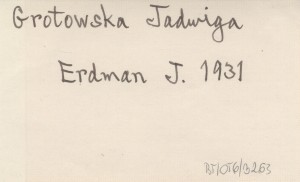 Grotowska Jadwiga
Erdman J. 1931
BJ/OT6/3263